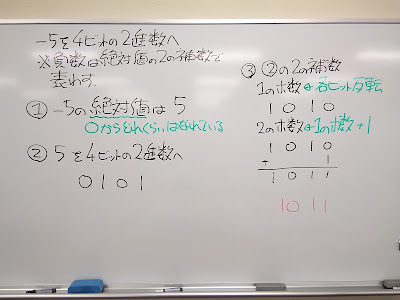 -5を4ビットの2進数へ
※負数は絶対値の2の補数で
表わす.
① -5の絶対値は 5
0からどれくらいはなれている
② 5を4ビットの2進数へ
0 1 0 1
③ ②の2の補数
1のホ数←各ビット反転
1 0 1 0
2のホ数←1のホ数+1
1 0 1 0
+ 1
1 0 1 1
1 0 1 1